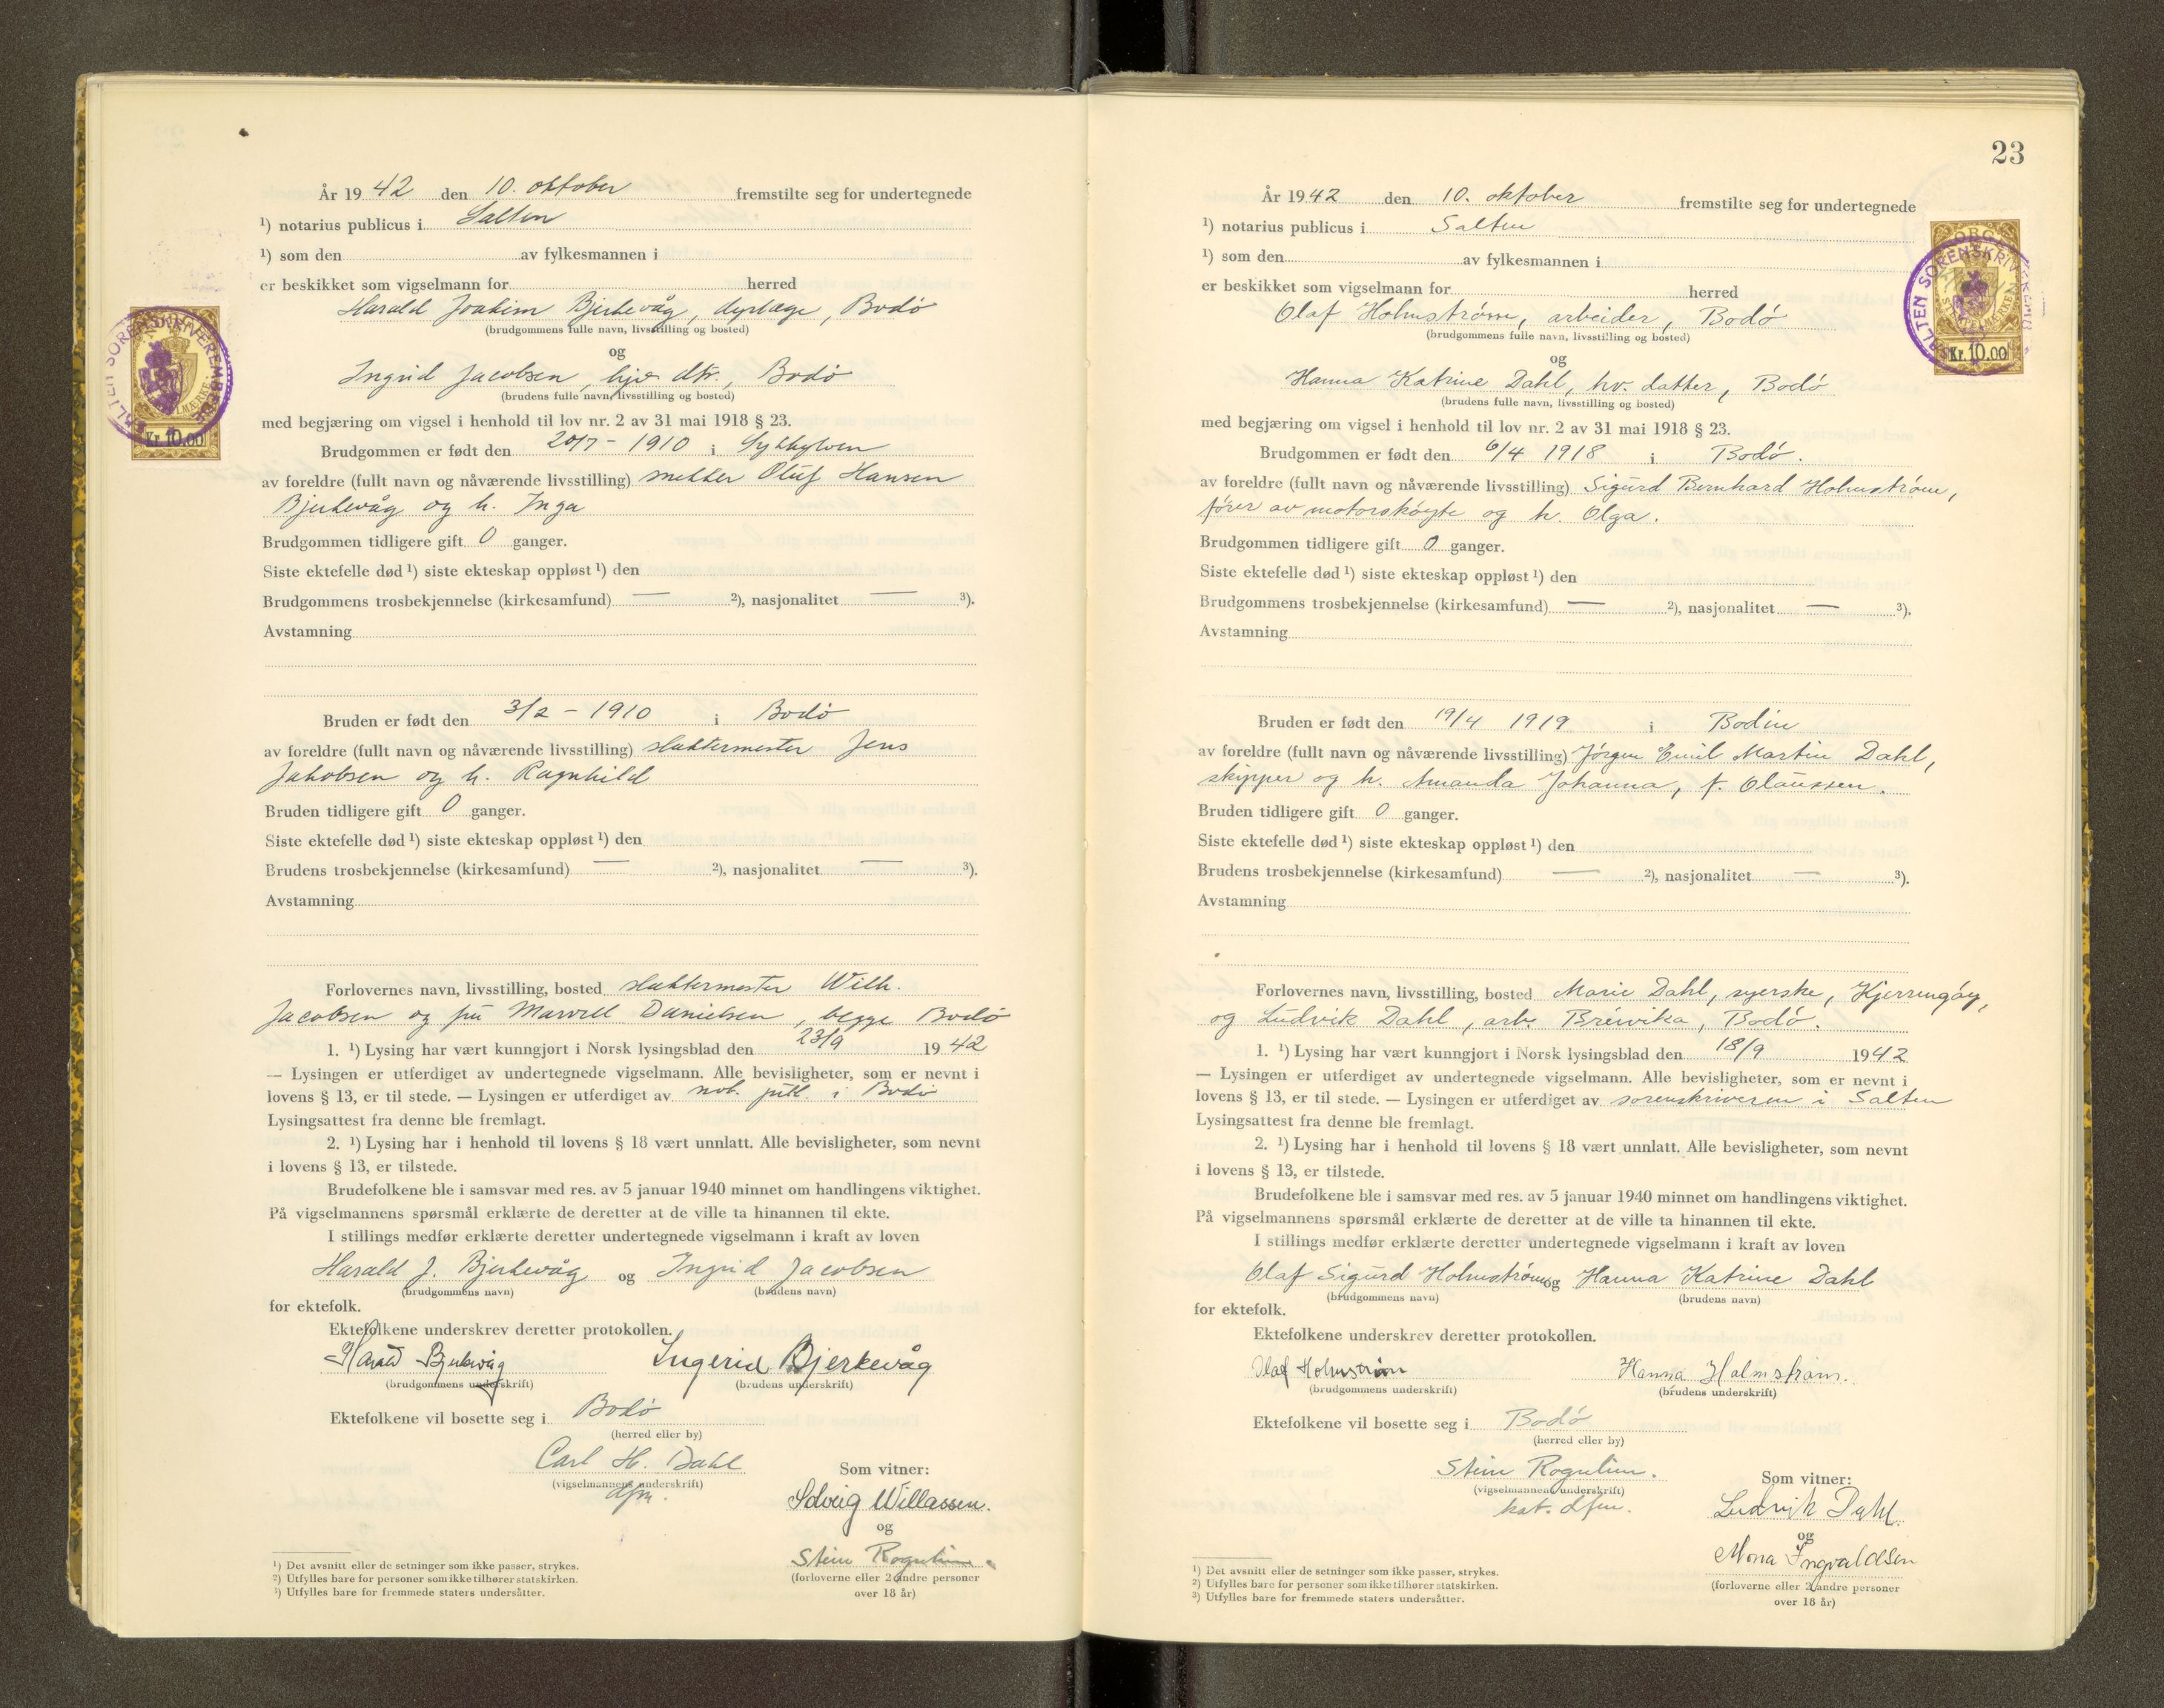 År 19 42 den 10. oktober fremstilte seg for undertegnede
¹) notarius publicus i Salten
¹) som den av fylkesmannen i
er beskikket som vigselmann for herred
Harald Joakim Bjerkevåg, dyrlæge, Bodø
(brudgommens fulle navn, livsstilling og bosted)
og
Ingrid Jacobsen, hjv dtr., Bodø
(brudens fulle navn, livsstilling og bosted)
med begjæring om vigsel i henhold til lov nr. 2 av 31 mai 1918 § 23.
Brudgommen er født den 20/7 - 1910 i Sykkylven
av foreldre (fullt navn og nåværende livsstilling) snekker Oluf Hansen
Bjerkevåg og h. Inga
Brudgommen tidligere gift 0 ganger.
Siste ektefelle død ¹) siste ekteskap oppløst ¹) den
Brudgommens trosbekjennelse (kirkesamfund) — ²), nasjonalitet — ³).
Avstamning
Bruden er født den 3/2 - 1910 i Bodø
av foreldre (fullt navn og nåværende livsstilling) slaktermester Jens
Jakobsen og h. Ragnhild
Bruden tidligere gift 0 ganger.
Siste ektefelle død ¹) siste ekteskap oppløst ¹) den
Brudens trosbekjennelse (kirkesamfund) — ²), nasjonalitet — ³).
Avstamning
Forlovernes navn, livsstilling, bosted slaktermester Wilh.
Jacobsen og fru Danielsen, begge Bodø
1. ¹) Lysing har vært kunngjort i Norsk lysingsblad den 23/9 19 42
— Lysingen er utferdiget av undertegnede vigselmann. Alle bevisligheter, som er nevnt i
lovens § 13, er til stede. — Lysingen er utferdiget av not. publ. i Bodø
Lysingsattest fra denne ble fremlagt.
2. ¹) Lysing har i henhold til lovens § 18 vært unnlatt. Alle bevisligheter, som nevnt
i lovens § 13, er tilstede.
Brudefolkene ble i samsvar med res. av 5 januar 1940 minnet om handlingens viktighet.
På vigselmannens spørsmål erklærte de deretter at de ville ta hinannen til ekte.
I stillings medfør erklærte deretter undertegnede vigselmann i kraft av loven
Harald J. Bjerkevåg og Ingrid Jacobsen
(brudgommens navn) (brudens navn)
for ektefolk.
Ektefolkene underskrev deretter protokollen.
Harald Bjerkevåg Ingerid Bjerkevåg
(brudgommens underskrift) (brudens underskrift)
Ektefolkene vil bosette seg i Bodø
(herred eller by)
Carl H. Dahl
(vigselmannens underskrift)
dfm.
Som vitner:
Solveig Willassen.
og
Stein Rognlien.
(forloverne eller 2 andre personer
over 18 år)
¹) Det avsnitt eller de setninger som ikke passer, strykes.
²) Utfylles bare for personer som ikke tilhører statskirken.
³) Utfylles bare for fremmede staters undersåtter.
SALTEN SORENSKRIVEREMBEDE
Kr. 10.00
23
År 19 42 den 10. oktober fremstilte seg for undertegnede
¹) notarius publicus i Salten
¹) som den av fylkesmannen i
er beskikket som vigselmann for herred
Olaf Holmstrøm, arbeider, Bodø
(brudgommens fulle navn, livsstilling og bosted)
og
Hanna Katrine Dahl, hv. datter, Bodø
(brudens fulle navn, livsstilling og bosted)
med begjæring om vigsel i henhold til lov nr. 2 av 31 mai 1918 § 23.
Brudgommen er født den 6/4 1918 i Bodø.
av foreldre (fullt navn og nåværende livsstilling) Sigurd Bernhard Holmstrøm,
fører av motorskøyte og h. Olga.
Brudgommen tidligere gift 0 ganger.
Siste ektefelle død ¹) siste ekteskap oppløst ¹) den
Brudgommens trosbekjennelse (kirkesamfund) — ²), nasjonalitet — ³).
Avstamning
Bruden er født den 19/4 1919 i Bodin
av foreldre (fullt navn og nåværende livsstilling) Jørgen Emil Martin Dahl,
skipper og h. Amanda Johanna, f. Olaussen.
Bruden tidligere gift 0 ganger.
Siste ektefelle død ¹) siste ekteskap oppløst ¹) den
Brudens trosbekjennelse (kirkesamfund) — ²), nasjonalitet — ³).
Avstamning
Forlovernes navn, livsstilling, bosted Marie Dahl, syerske, Kjerringøy,
og Ludvik Dahl, arb. Breivika, Bodø.
1. ¹) Lysing har vært kunngjort i Norsk lysingsblad den 18/9 19 42
— Lysingen er utferdiget av undertegnede vigselmann. Alle bevisligheter, som er nevnt i
lovens § 13, er til stede. — Lysingen er utferdiget av sorenskriveren i Salten
Lysingsattest fra denne ble fremlagt.
2. ¹) Lysing har i henhold til lovens § 18 vært unnlatt. Alle bevisligheter, som nevnt
i lovens § 13, er tilstede.
Brudefolkene ble i samsvar med res. av 5 januar 1940 minnet om handlingens viktighet.
På vigselmannens spørsmål erklærte de deretter at de ville ta hinannen til ekte.
I stillings medfør erklærte deretter undertegnede vigselmann i kraft av loven
Olaf Sigurd Holmstrøm og Hanna Katrine Dahl
(brudgommens navn) (brudens navn)
for ektefolk.
Ektefolkene underskrev deretter protokollen.
Olaf Holmstrøm Hanna Holmstrøm.
(brudgommens underskrift) (brudens underskrift)
Ektefolkene vil bosette seg i Bodø
(herred eller by)
Stein Rognlien.
(vigselmannens underskrift)
kst. dfm.
Som vitner:
Ludvik Dahl.
og
Mona Ingvaldsen
(forloverne eller 2 andre personer
over 18 år)
¹) Det avsnitt eller de setninger som ikke passer, strykes.
²) Utfylles bare for personer som ikke tilhører statskirken.
³) Utfylles bare for fremmede staters undersåtter.
Kr. 10.00